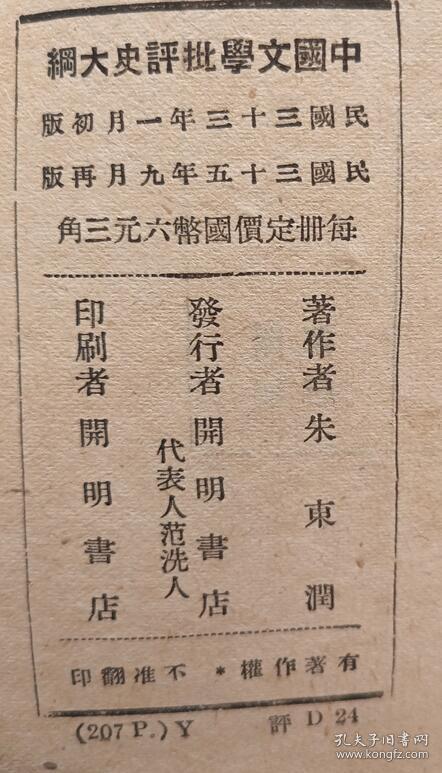 中國文學批評史大綱
民國三十三年一月初版
民國三十五年九月再版
每册定價國幣六元三角
著作者 朱東潤
發行者 開明書店
代表人范洗人
印刷者 開明書店
有著作權*不准翻印
(207 P.) Y 評 D 24
孔夫子旧书网
www.kongfz.com